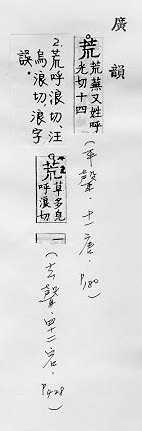 廣韻
荒 荒蕪又姓呼
光切十四
(平聲．十一唐．P.180)
荒 草多皃
呼浪切 一
(去聲．四十二宕．P.428)
2.荒呼浪切、汪
烏浪切浪字
誤。